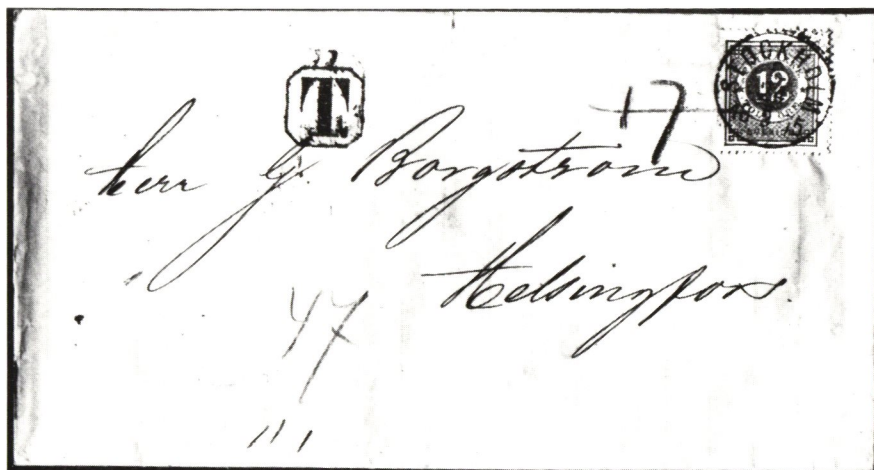 T
17
STOCKHOLM
12
Herr G. Borgström
Helsingfors.
47